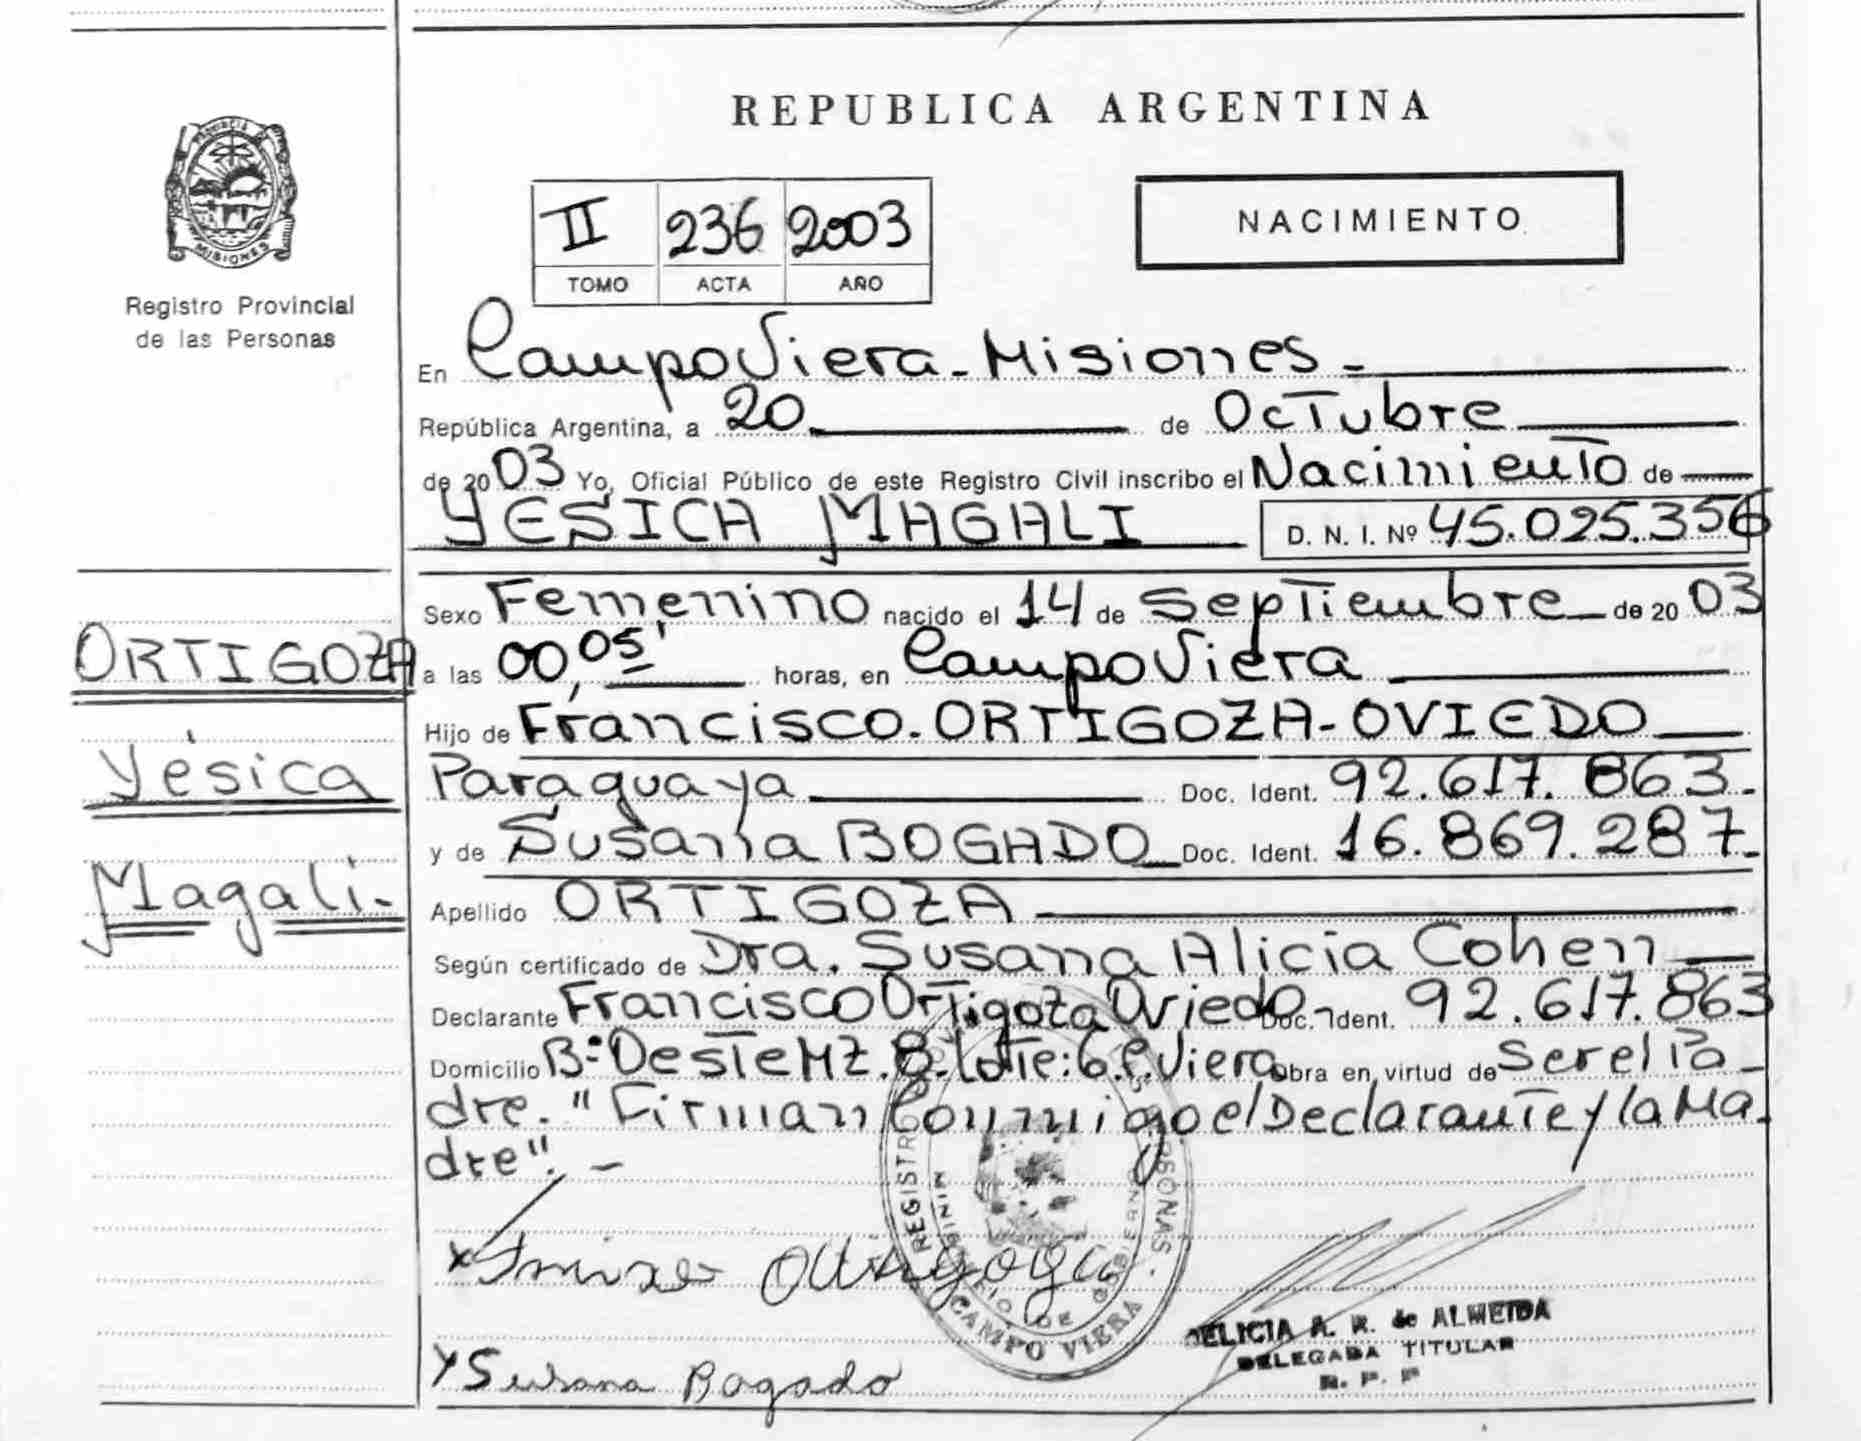 REPUBLICA ARGENTINA
PROVINCIA DE MISIONES
Registro Provincial
de las Personas
II 236 2003
TOMO ACTA AÑO
NACIMIENTO
En Campo Viera - Misiones -
República Argentina, a 20 de Octubre
de 2003 Yo, Oficial Público de este Registro Civil inscribo el Nacimiento de
YESICA MAGALI D. N. I. Nº 45.025.356
Sexo Femenino nacido el 14 de Septiembre de 2003
ORTIGOZA
a las 00,05' horas, en Campo Viera
Hijo de Francisco. ORTIGOZA-OVIEDO
Yésica
Paraguaya Doc. Ident. 92.617.863.-
y de Susana BOGADO Doc. Ident. 16.869.287.-
Magali.-
Apellido ORTIGOZA
Según certificado de Dra. Susana Alicia Cohen
Declarante Francisco Ortigoza Oviedo Doc. Ident. 92.617.863
Domicilio B:Oeste Mz.8.Lote:6.C.Viera Obra en virtud de Ser el Pa-
dre. "Firman Conmigo el Declarante y la Ma-
dre". -
REGISTRO PERSONAS
MINISTERIO DE GOBIERNO
CAMPO VIERA
x Ortigoza
DELICIA A. R. de ALMEIDA
DELEGADA TITULAR
R. P. P
x Susana Bogado